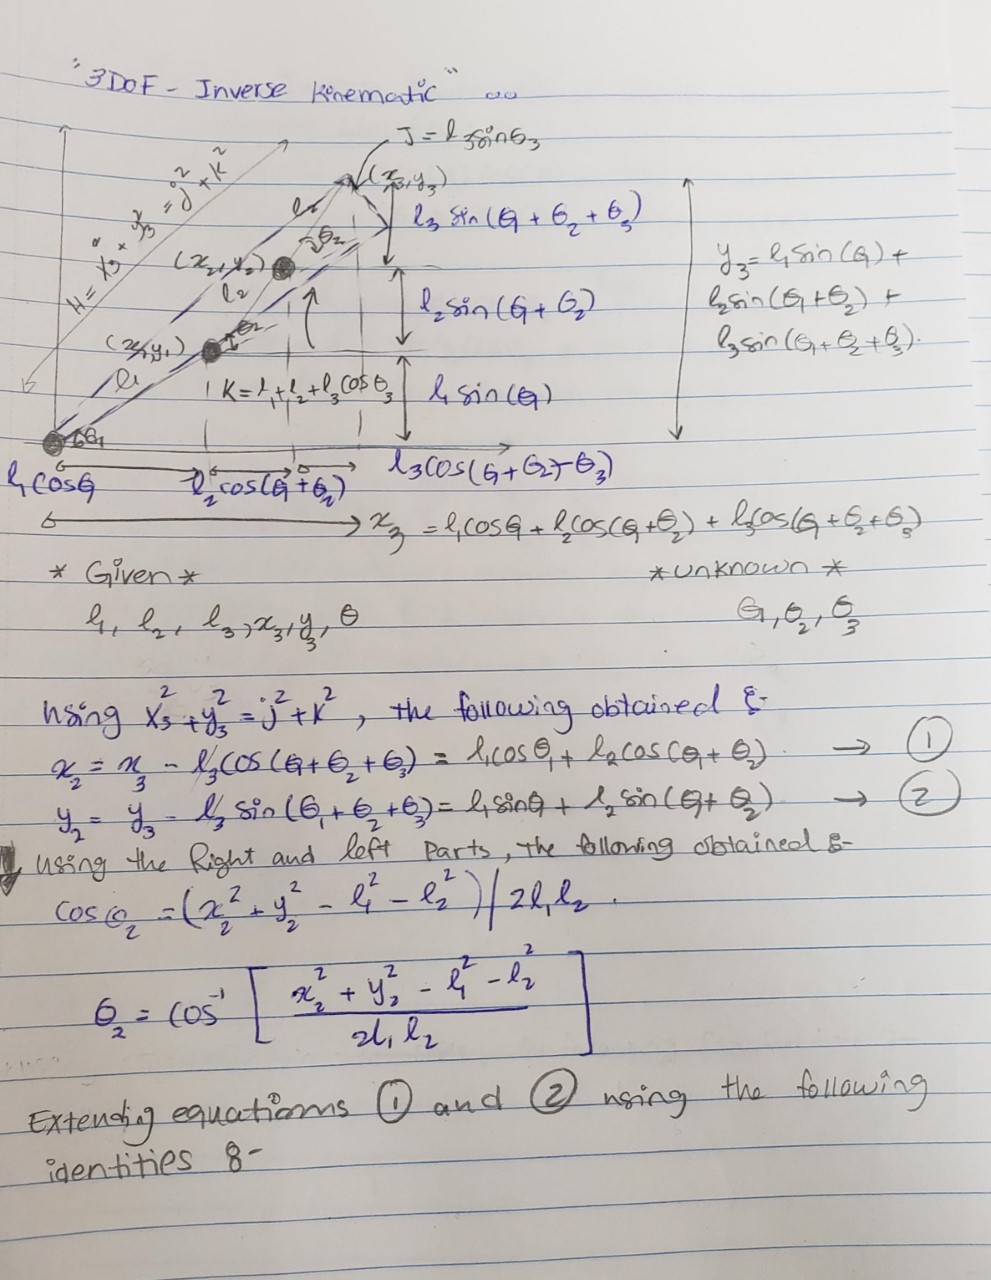 "3DoF - Inverse Kinematic"
J = l3sinθ3
(x3,y3)
H = x3² + y3² = j² + k²
l3
l3 sin(θ1 + θ2 + θ3)
θ2
(x2, y2)
y3 = l1sin(θ1) +
l2sin(θ1+θ2) +
l3sin(θ1+θ2+θ3).
l2
l2sin(θ1+θ2)
(x1,y1)
θ2
l1
K = l1+l2+l3cosθ3
l1 sin(θ1)
θ1
l1cosθ1
l2cos(θ1+θ2)
l3cos(θ1+θ2+θ3)
x3 = l1cosθ1 + l2cos(θ1+θ2) + l3cos(θ1+θ2+θ3)
* Given *
*unknown *
l1, l2, l3, x3, y3, θ
θ1, θ2, θ3
using x3² + y3² = j² + k², the following obtained :-
x2 = x3 - l3cos(θ1+θ2+θ3) = l1cosθ1 + l2cos(θ1+θ2). → ①
y2 = y3 - l3 sin(θ1+θ2+θ3) = l1sinθ1 + l2 sin(θ1+θ2) → ②
using the Right and left parts, the following obtained :-
cosθ2 = (x2² + y2² - l1² - l2²) / 2l1l2.
θ2 = cos⁻¹ [ (x2² + y2² - l1² - l2²) / 2l1l2 ]
Extending equations ① and ② using the following
identities :-